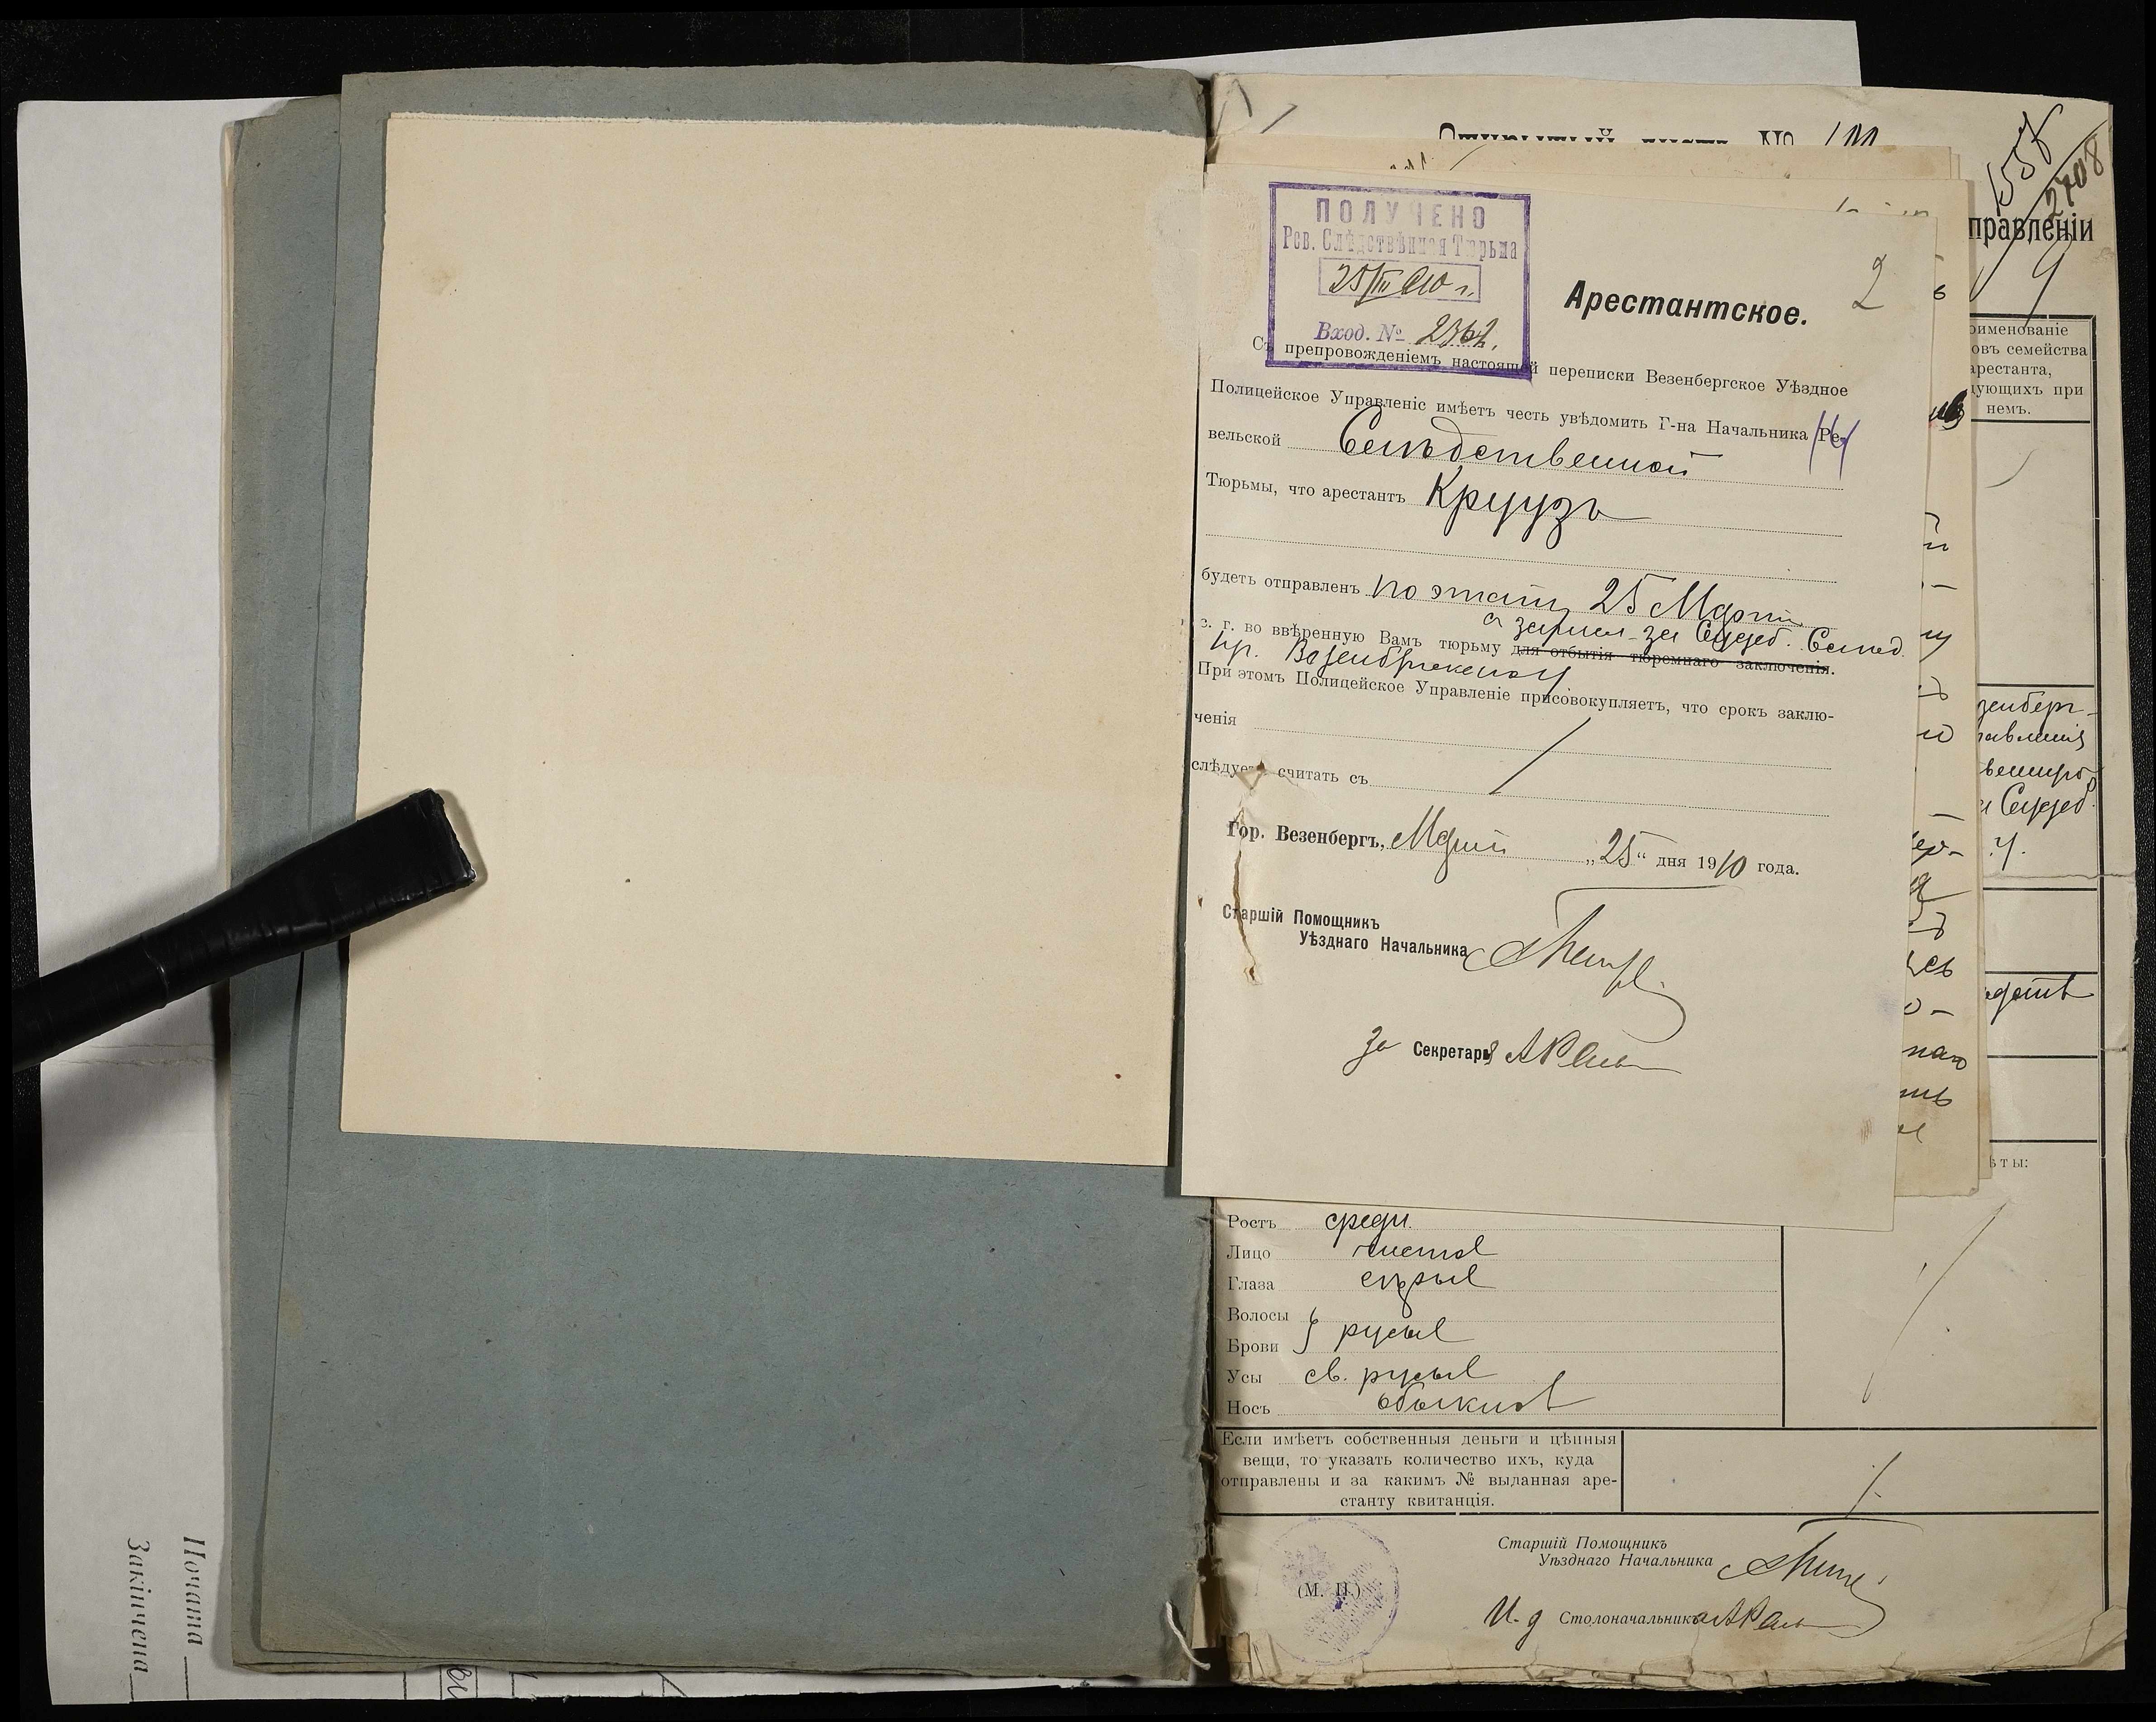 Открытый листъ №
2708
правленіи
2
ПОЛУЧЕНО
Рев. Слѣдственная Тюрьма
25/III 910 г.
Вход. № 2362.
Арестантское.
Съ препровожденіемъ настоящей переписки Везенбергское Уѣздное
Полицейское Управленіе имѣетъ честь увѣдомить Г-на Начальника Ре-
вельской Слѣдственной
Тюрьмы, что арестантъ Круузъ
будетъ отправленъ по этапу 25 Марта
с. г. во ввѣренную Вамъ тюрьму для отбытія тюремнаго заключенія.
а зачисл. за Судеб. Слѣд.
При этомъ Полицейское Управленіе присовокупляетъ, что срокъ заклю-
ченія
слѣдуетъ считать съ
Гор. Везенбергъ, Марта „25“ дня 1910 года.
Старшій Помощникъ
Уѣзднаго Начальника
за Секретаря
оименованіе
овъ семейства
арестанта,
дующихъ при
немъ.
зенберг-
равленія
Судеб.
ѣты:
Ростъ средн.
Лицо чистое
Глаза сѣрые
Волосы
Брови } русые
Усы св. русые
Носъ обыкнов
Если имѣетъ собственныя деньги и цѣнныя
вещи, то указать количество ихъ, куда
отправлены и за какимъ № выданная аре-
станту квитанція.
Старшій Помощникъ
Уѣзднаго Начальника
(М. П.)
И. д Столоначальника
Почата
Закінчена